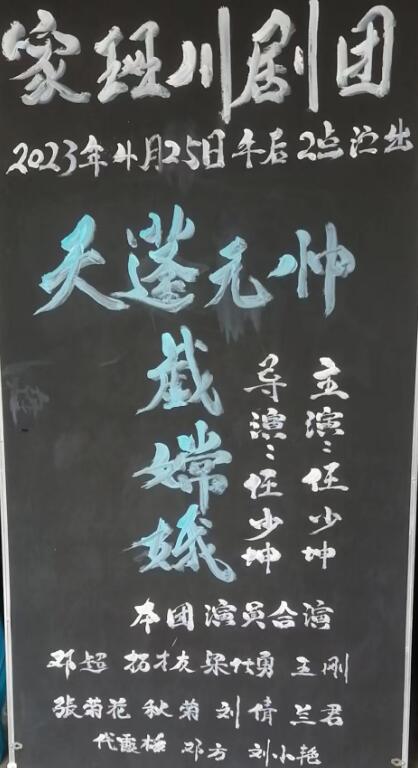 家班川剧团
2023年4月25日午后2点演出
天蓬元帅
戲嫦娥
主演：任少坤
导演：任少坤
本团演员合演
邓超 才友 梁仕勇 王刚
張菊花 秋菊 刘倩 兰君
代霞 邓方 刘小艳